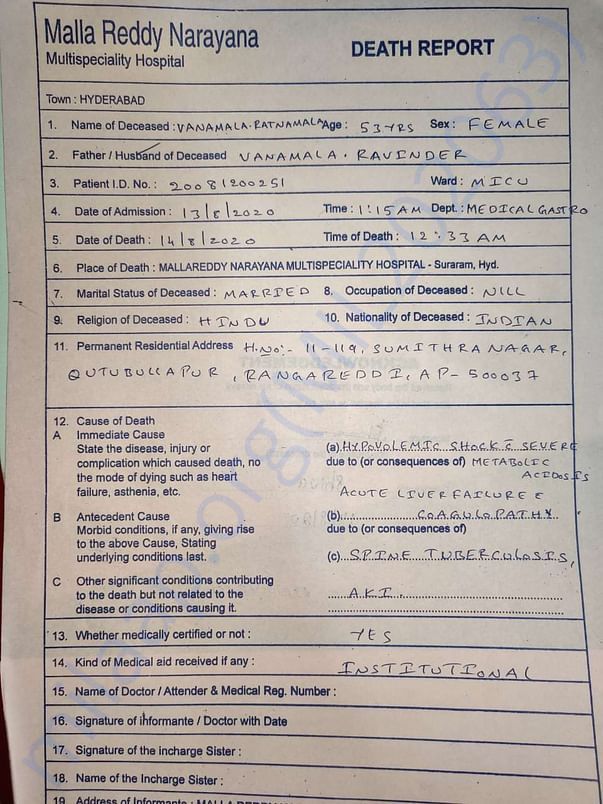 Malla Reddy Narayana
Multispeciality Hospital
DEATH REPORT
Town : HYDERABAD
1. Name of Deceased : VANAMALA. RATNAMALA Age : 53 YRS Sex : FEMALE
2. Father / Husband of Deceased VANAMALA. RAVINDER
3. Patient I.D. No. : 20081200251 Ward : MICU
4. Date of Admission : 13/8/2020 Time : 1:15 AM Dept. : MEDICAL GASTRO
5. Date of Death : 14/8/2020 Time of Death : 12:33 AM
6. Place of Death : MALLAREDDY NARAYANA MULTISPECIALITY HOSPITAL - Suraram, Hyd.
7. Marital Status of Deceased : MARRIED 8. Occupation of Deceased : NILL
9. Religion of Deceased : HINDU 10. Nationality of Deceased : INDIAN
11. Permanent Residential Address H.No:- 11-119, SUMITHRA NAGAR,
QUTUBULLAPUR, RANGAREDDI, AP-500037
12. Cause of Death
A Immediate Cause
State the disease, injury or
complication which caused death, no
the mode of dying such as heart
failure, asthenia, etc.
(a) HYPOVOLEMIC SHOCK C̄ SEVERE
due to (or consequences of) METABOLIC
ACIDOSIS
ACUTE LIVER FAILURE C̄
B Antecedent Cause
Morbid conditions, if any, giving rise
to the above Cause, Stating
underlying conditions last.
(b) COAGULOPATHY
due to (or consequences of)
(c) SPINE TUBERCULOSIS,
C Other significant conditions contributing
to the death but not related to the
disease or conditions causing it.
AKI.
13. Whether medically certified or not : YES
14. Kind of Medical aid received if any : INSTITUTIONAL
15. Name of Doctor / Attender & Medical Reg. Number :
16. Signature of informante / Doctor with Date
17. Signature of the incharge Sister :
18. Name of the Incharge Sister :
19. Address of Informante : MALLA